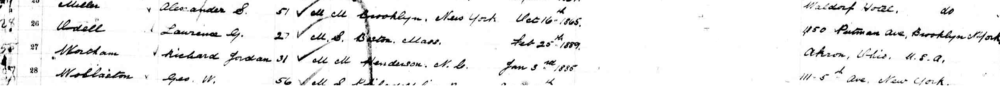 Miller Alexander S. 51 M M Brooklyn, New York Oct 16th 1865. Waldorf Hotel. do
26 Odell Laurence G. 27 M S Boston, Mass. Feb 25th 1889. 1150 Putnam Ave, Brooklyn N. York
27 Wortham Richard Jordan 31 M M Henderson, N. C. Jan 3rd 1885 Akron, Ohio. U.S.A.
28 Geo. W. 56 M S 111-5th Ave. New York.